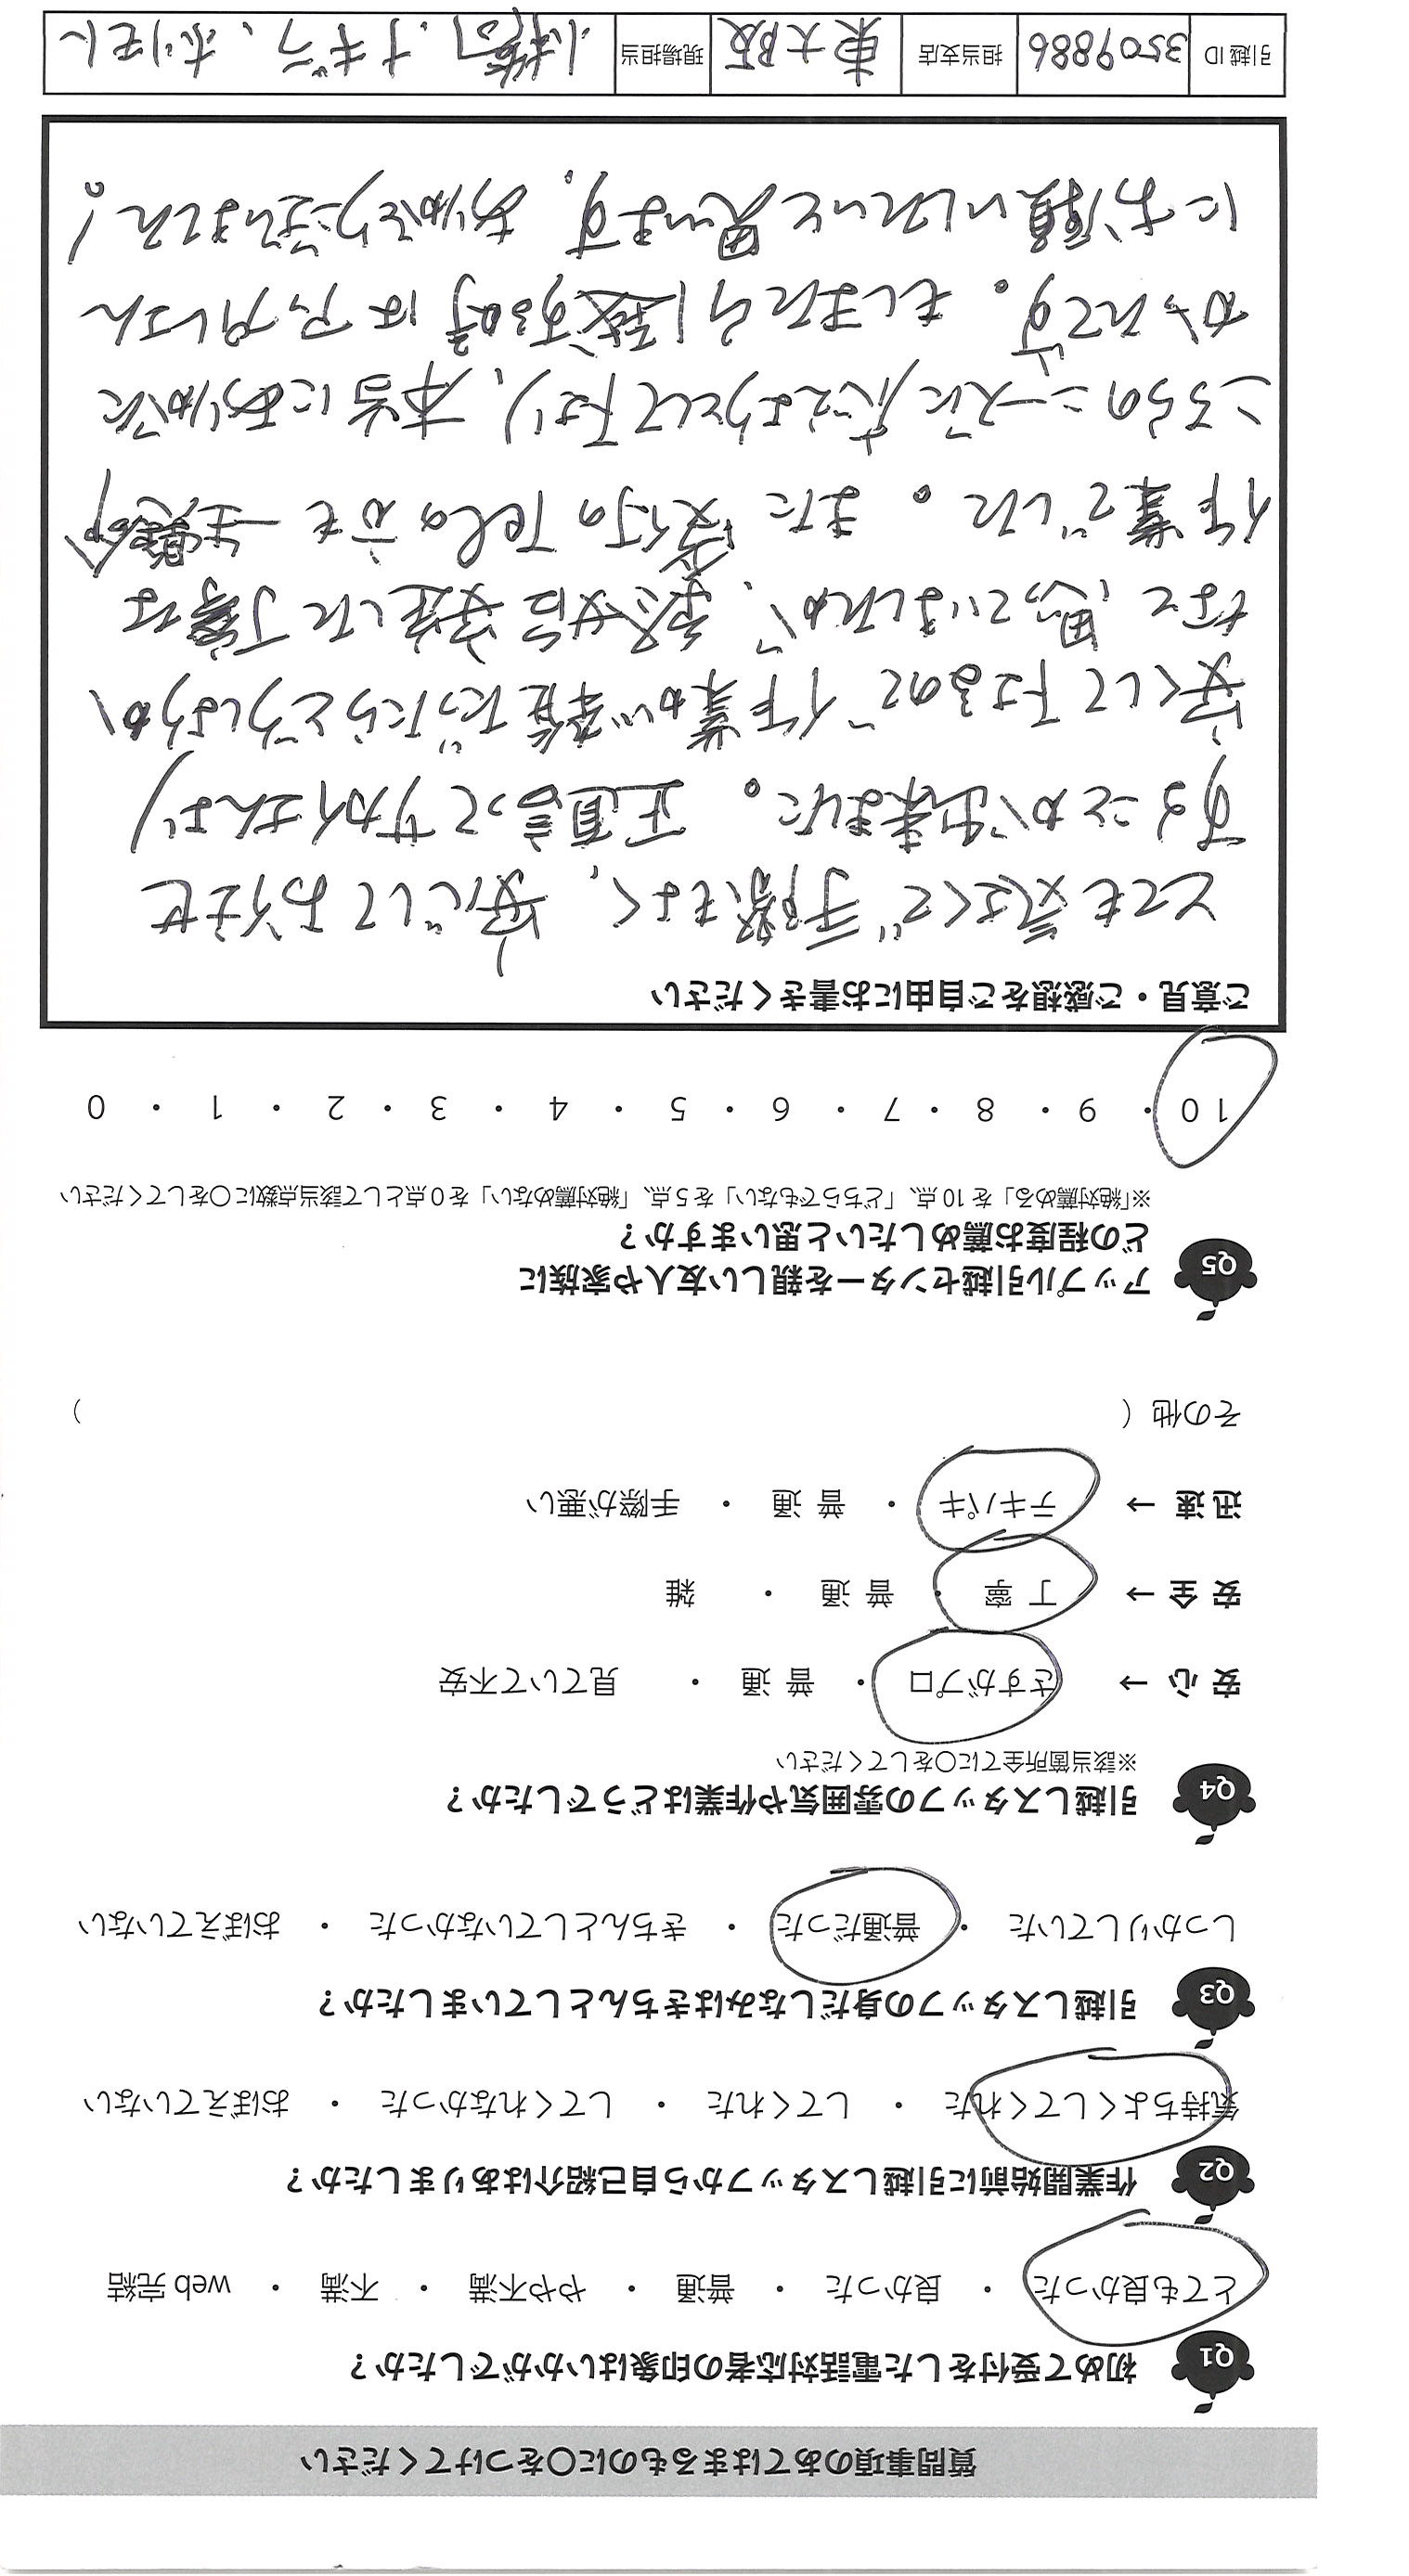 質問事項のあてはまるものに〇をつけてください
Q1 初めて受付をした電話対応者の印象はいかがでしたか？
とても良かった ・ 良かった ・ 普通 ・ やや不満 ・ 不満 ・ web 完結
Q2 作業開始前に引越しスタッフから自己紹介はありましたか？
気持ちよくしてくれた ・ してくれた ・ してくれなかった ・ おぼえていない
Q3 引越しスタッフの身だしなみはきちんとしていましたか？
しっかりしていた ・ 普通だった ・ きちんとしていなかった ・ おぼえていない
Q4 引越しスタッフの雰囲気や作業はどうでしたか？
※該当箇所全てに〇をしてください
安 心 → さすがプロ ・ 普 通 ・ 見ていて不安
安 全 → 丁 寧 ・ 普 通 ・ 雑
迅 速 → テキパキ ・ 普 通 ・ 手際が悪い
その他（ ）
Q5 アップル引越センターを親しい友人や家族に
どの程度お薦めしたいと思いますか？
※「絶対薦める」を 10 点、「どちらでもない」を 5 点、「絶対薦めない」を 0 点として該当点数に〇をしてください
10 ・ 9 ・ 8 ・ 7 ・ 6 ・ 5 ・ 4 ・ 3 ・ 2 ・ 1 ・ 0
ご意見・ご感想をご自由にお書きください
とても気さくで手際もよく、安心してお任せ
することが出来ました。正直言ってサカイさんより
安くして下さるので作業が雑だったらどうしようか
なと思っていましたが、終始安定した丁寧な
作業でした。また受付のTelの方も一生懸命
こちらのニーズに応えようとして下さり、本当にありがた
かったです。もしまた引越する時はアップルさん
にお願いしたいと思います。ありがとうございました！。
引越 ID 3509886 担当支店 東大阪 現場担当 小椿、ナギラ、ホリモト